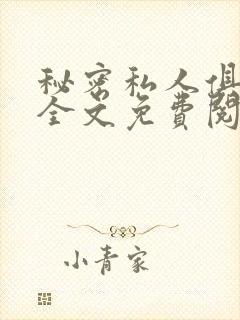 秘密私人俱
全文免費閱
小青家